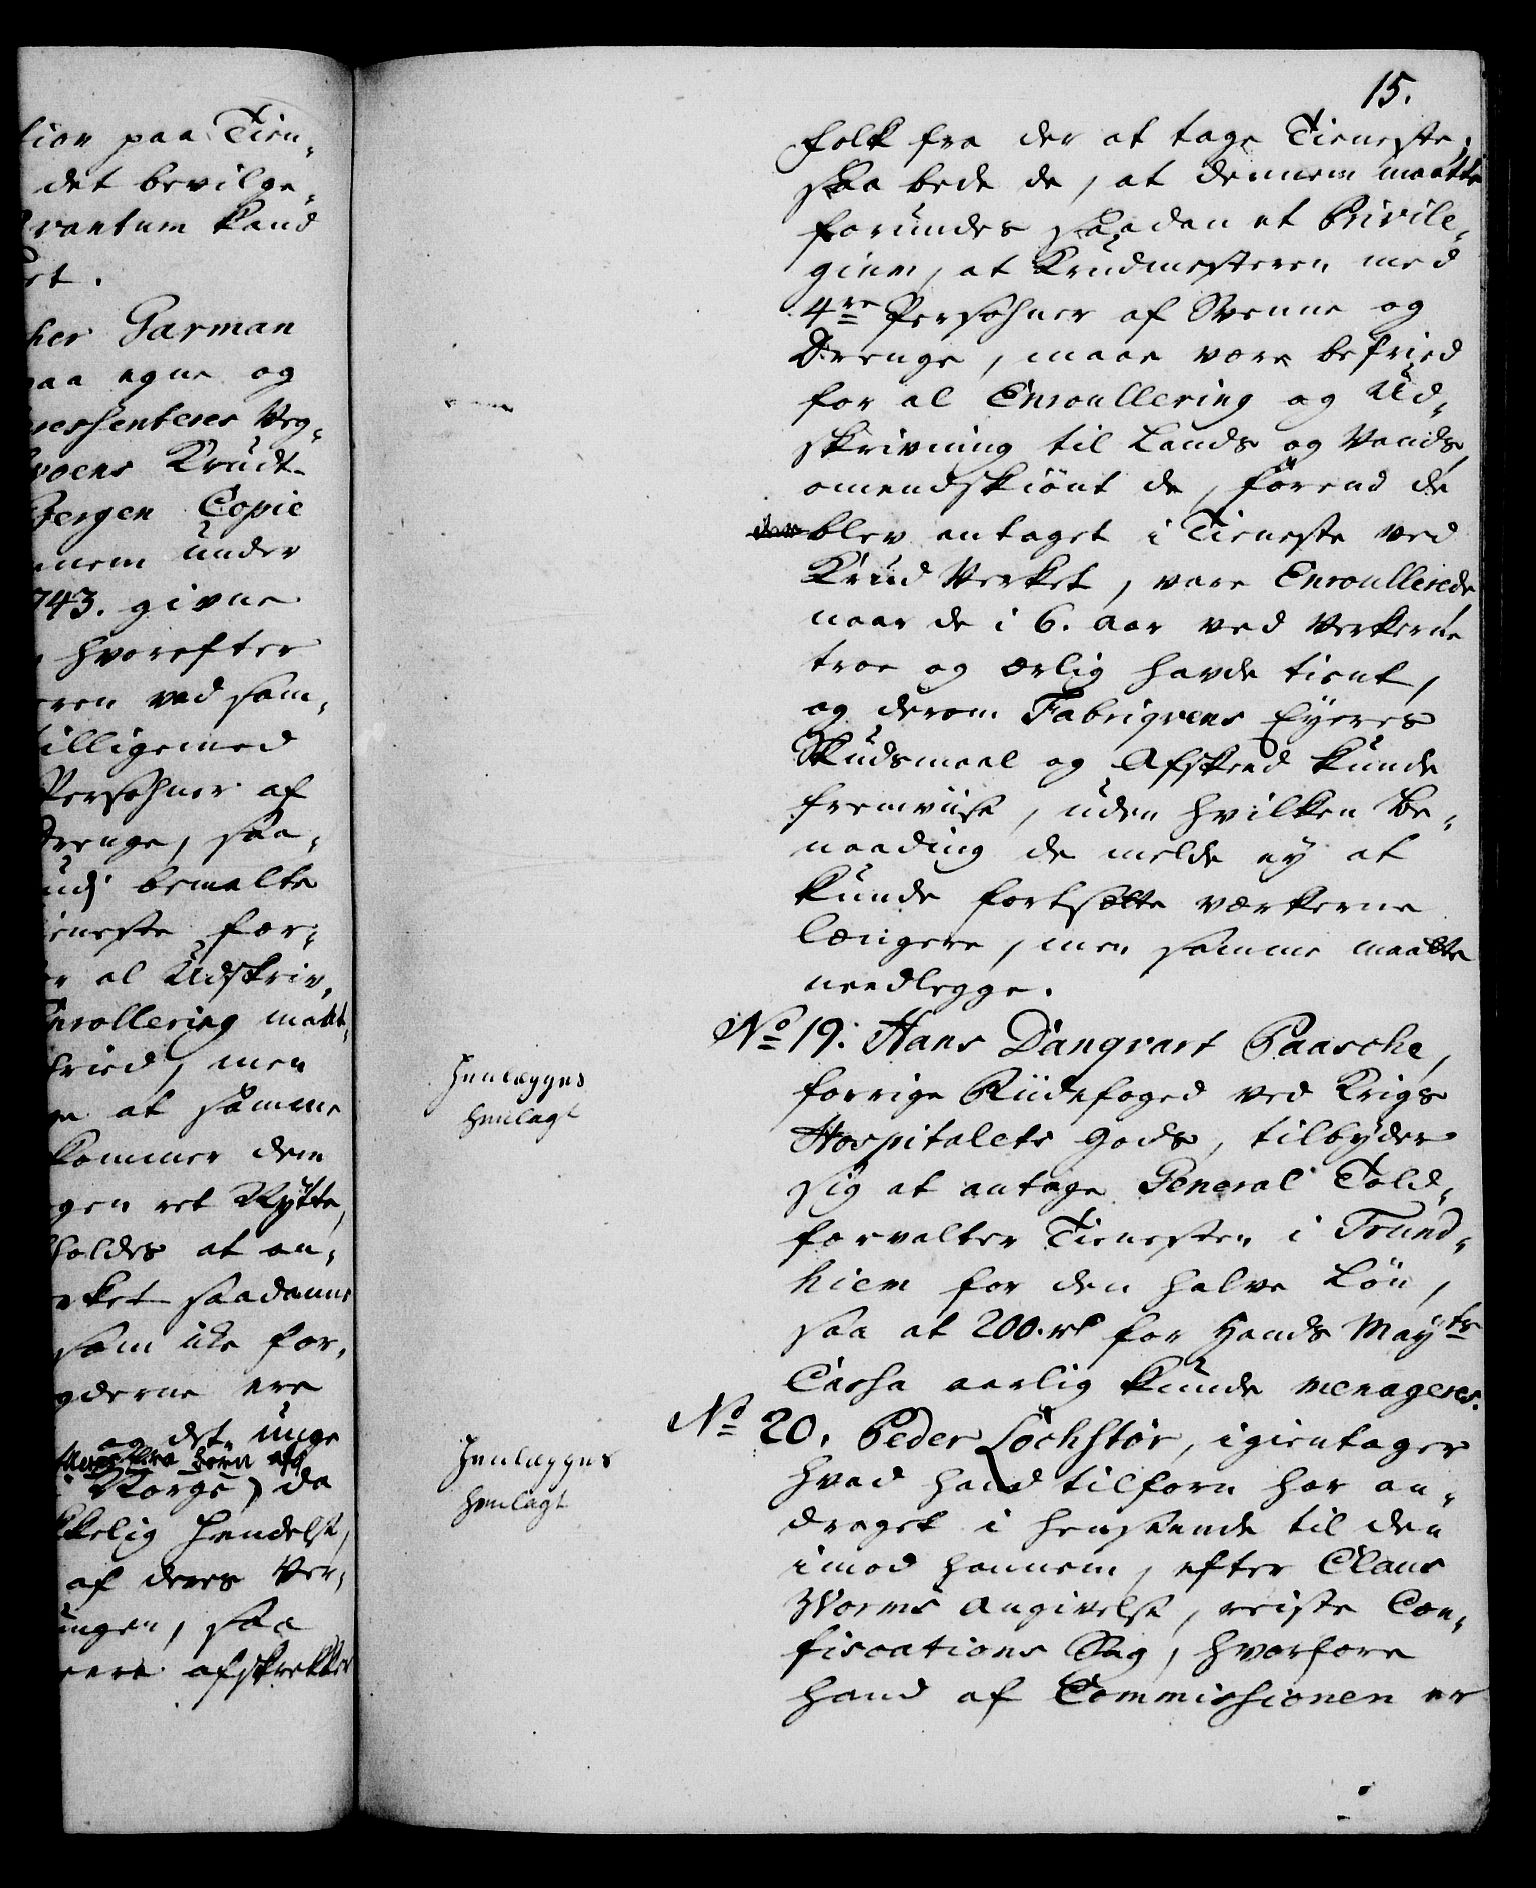 tion paa Tien-
det bevilge-
qvantum kand
et.
her Garman
paa egne og
ressenterer Veg-
voens Krudt-
Bergen Copie
nem under
743. givne
hvorefter
eren ved sam-
tilligemed
Persohner af
Drenge, saa-
udj bemelte
ieneste for-
or al Udskriv-
nrollering maat-
fried, men
at samme
kommer dem
gen ret Nytte,
holdes at an-
rket saadanne
som icke for-
gderne ere
og det unge
i Norge) da
kkelig Hendelse,
af deres Ver-
ungen, saa
eere afskrekket
15.
folk fra der at tage Tieneste;
saa bede de, at dennem maatte
forundes saadan et Privile-
gium, at Krudmesteren med
4re Persohner af Svenne og
Drenge, maae være befried
for al Enroullering og Ud-
skrivning til Lands og Vands,
omendskiönt de, förend de
blev antaget i Tieneste ved
Krud Verket, vare Enroullerede
naar de i 6. aar ved Verkerne
troe og ærlig havde tient,
og derom Fabriqvens Eyeres
Skudsmaal og Afskeed kunde
fremviise, uden hvilken Be-
naading de melde ey at
kunde fortsætte værkerne
længere, men samme maatte
needlegge.
No 19. Hans Danqvart Paasche,
forrige Riidefoged ved Krigs
Hospitalets Gods, tilbyder
sig at antage General Told-
forvalter Tienesten i Trund-
hiem for den halve Lön,
saa at 200. rd for Hands Mayts
Cassa aarlig kunde menageres.
Henlægges
henlagt
No 20. Peder Löchstör, igientager
hvad hand tilforn har an-
draget i henseende til den
imod hannem, efter Claus
Worms Angivelse, reiste Con-
fiscations Sag, hvorfore
hand af Commissionen er
Henlægges
henlagt